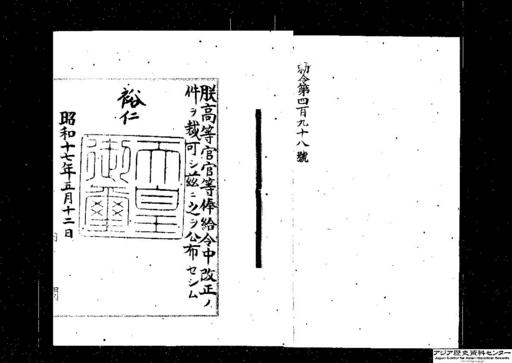 勅令第四百九十八號
朕高等官官等俸給令中改正ノ
件ヲ裁可シ茲ニ之ヲ公布セシム
裕仁
天皇御璽
昭和十七年五月十二日
アジア歴史資料センター
Japan Center for Asian Historical Records